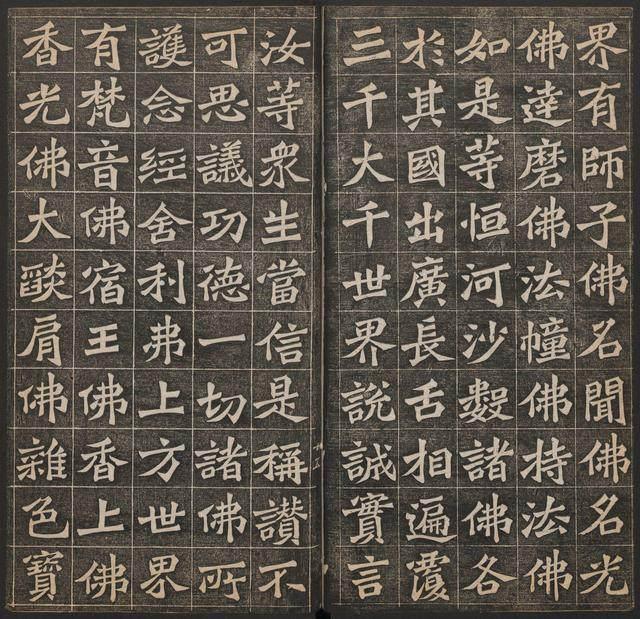 界有師子佛名聞佛名光
佛達磨佛法幢佛持法佛
如是等恒河沙數諸佛各
於其國出廣長舌相遍覆
三千大千世界說誠實言
汝等眾生當信是稱讚不
可思議功德一切諸佛所
護念經舍利弗上方世界
有梵音佛宿王佛香上佛
香光佛大燄肩佛雜色寶